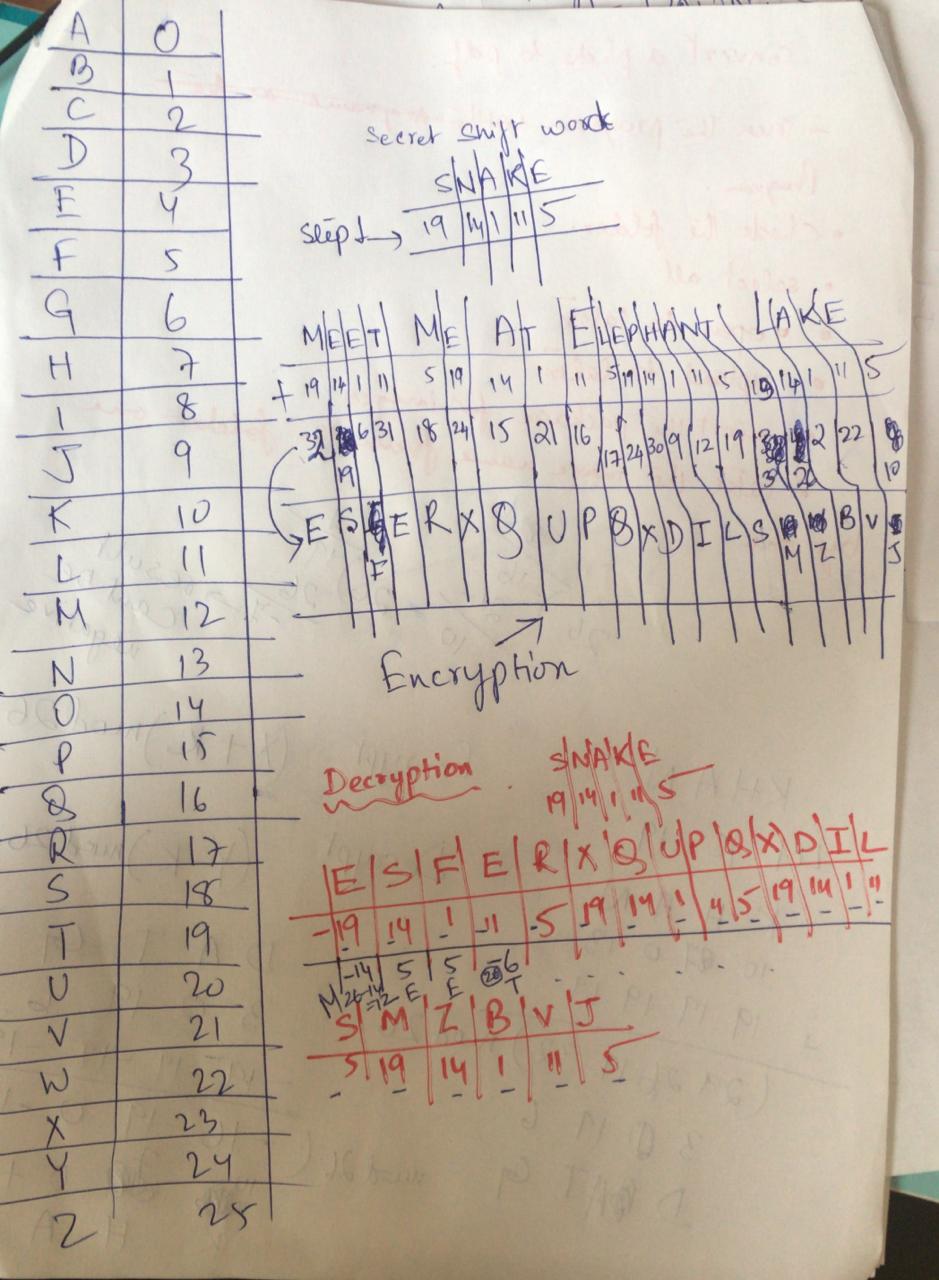 A 0
B 1
C 2
D 3
E 4
F 5
G 6
H 7
I 8
J 9
K 10
L 11
M 12
N 13
O 14
P 15
Q 16
R 17
S 18
T 19
U 20
V 21
W 22
X 23
Y 24
Z 25
secret shift word
S N A K E
19 14 1 11 5
M E E T M E A T E L E P H A N T L A K E
+ 19 14 1 11 5 19 14 1 11 5 19 14 1 11 5 19 14 1 11 5
19 6 31 18 24 15 21 16 17 24 30 9 12 19 20 2 22 10
E S F E R X Q U P Q X D I L S M Z B V J
Encryption
Decryption
S N A K E
19 14 1 11 5
E S F E R X Q U P Q X D I L
-19 14 1 11 5 19 14 1 11 5 19 14 1 11
-14 5 5 -6
M 26-14 =12 E E T
S M Z B V J
5 19 14 1 11 5